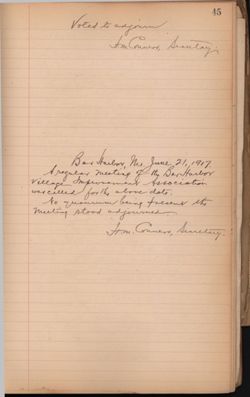 45
Voted to adjourn
Secretary.
Bar Harbor, Me, June 21, 1917
A regular meeting of the Bar Harbor
Village Improvement Association
was called for the above date.
No quorum being present the
meeting stood adjourned.
Conners, Secretary.